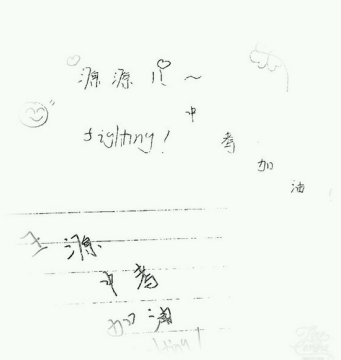 源源儿~
fighting!
中考加油
王源
中考
加油